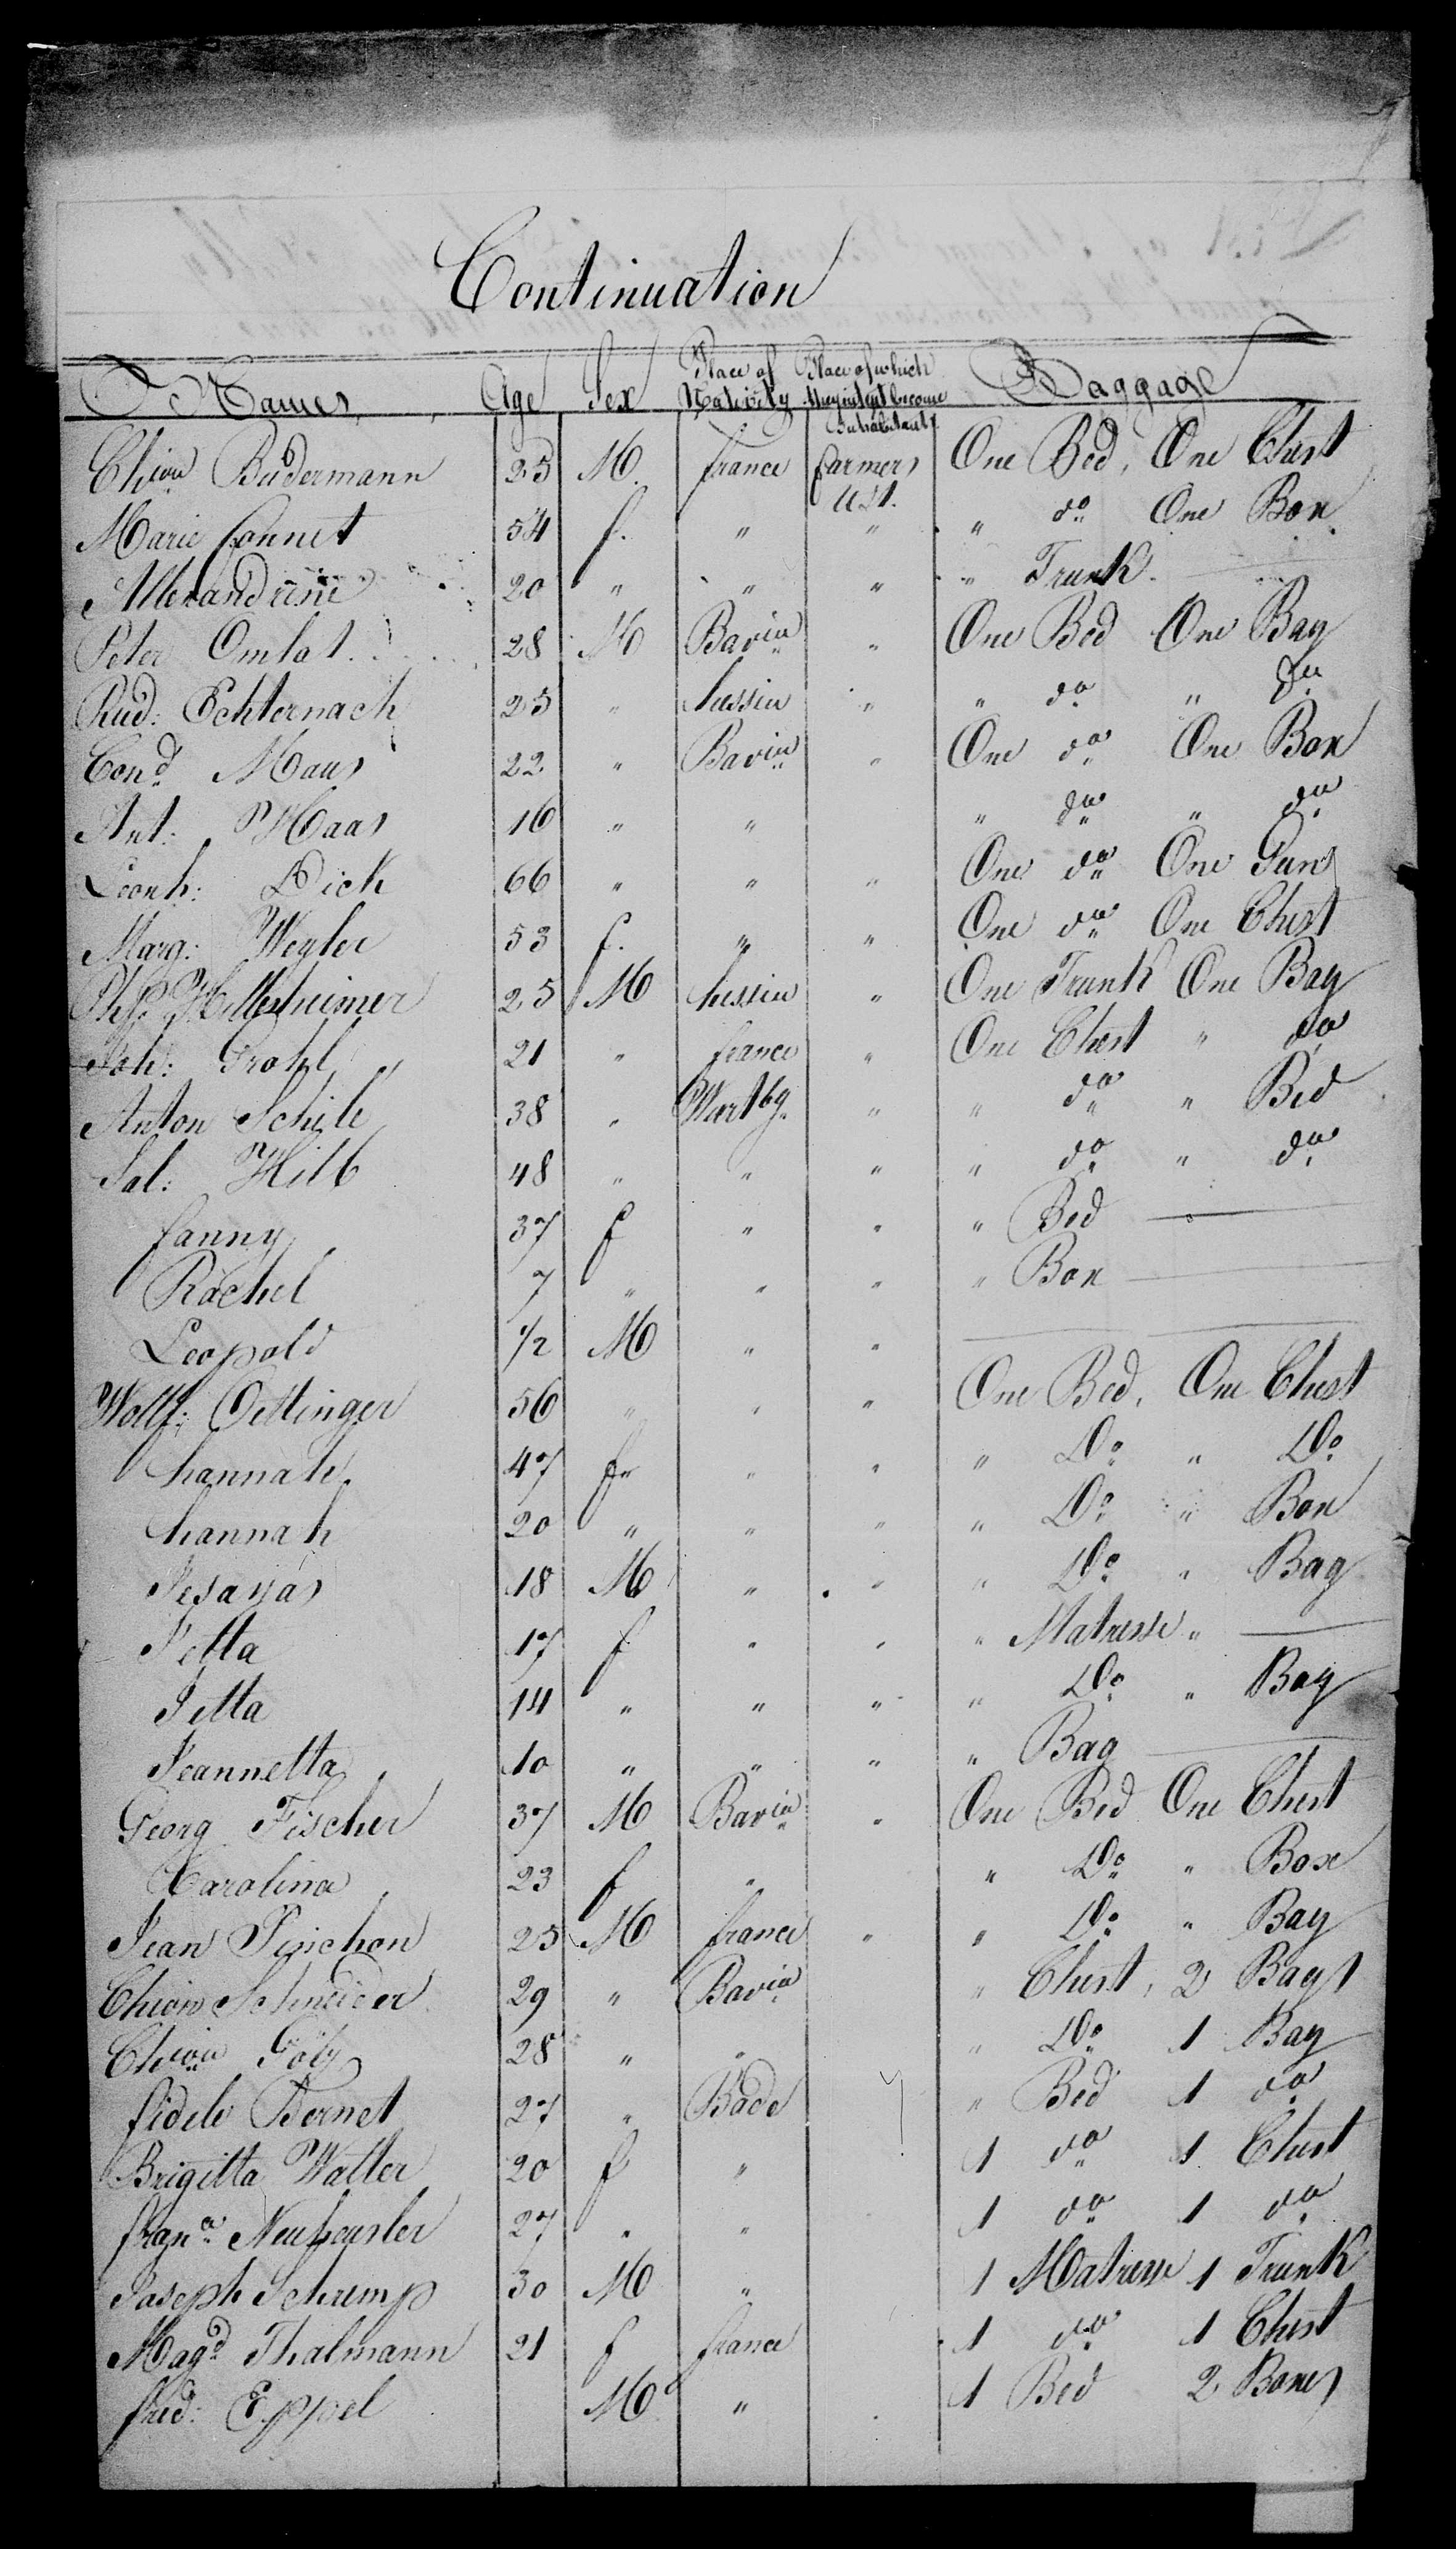 Continuation
Names Age Sex Place of Nativity Place of which they intend become Inhabitants Baggage
Chion Budermann 25 M. france farmers USt. One Bed, One Chest
Marie Connet 54 f. " " " do One Box
Allexandrine 20 " " " " Trunk.
Peter Omlot 28 M Bavia " One Bed One Bag
Rud: Echternach 25 " hessia " " do " do
Cond Maus 22 " Bavia " One do One Box
Ant: Haas 16 " " " do " do
Leonh: Dick 66 " " " One do One Gun
Marg: Weyler 53 f. " " One do One Chest
Php Hillesheimer 25 M hessia " One Trunk One Bag
Joh: Grohl 21 " france " One Chest " do
Anton Schile 38 " Wurtbg. " " do " Bed
Sal: Hilb 48 " " " " do " do
fanny 37 f " " " Bed
Rachel 7 " " " " Box
Leopold 1/2 M " "
Wolf: Oettinger 56 " " " One Bed, One Chest
hannah 47 f " " " Do " Do
hannah 20 " " " " Do " Box
Jesayas 18 M " " " Do " Bag
Jetta 17 f " " " Matresse "
Jetta 14 " " " " Do " Bag
Jeannetta 10 " " " " Bag
Georg Fischer 37 M Bavia " One Bed One Chest
Carolina 23 f " " Do " Box
Jean Pinchon 25 M france " " Do " Bag
Chion Schneider 29 " Bavia " Chest, 2 Bags
Chion Göby 28 " " " Do 1 Bag
fidele Bernet 27 " Bade " Bed 1 do
Brigitta Walter 20 f " 1 do 1 Chest
frana Neuheusler 27 " " 1 do 1 do
Joseph Schrimp 30 M " 1 Matresse 1 Trunk
Magd Thalmann 21 f france 1 do 1 Chest
fried: Eppel M " 1 Bed 2 Boxes